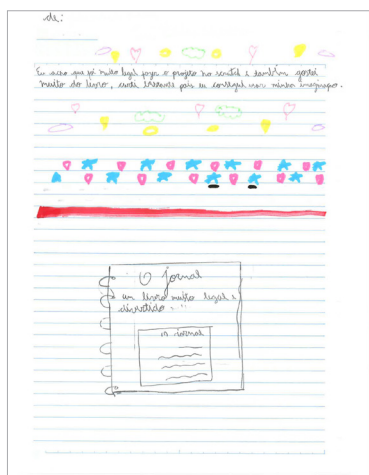 de:
Eu acho que foi muito legal fazer o projeto no scratch e também gostei
muito do livro, era interessante pois eu consegui usar minha imaginação.
O jornal
um livro muito legal e
divertido...
O jornal